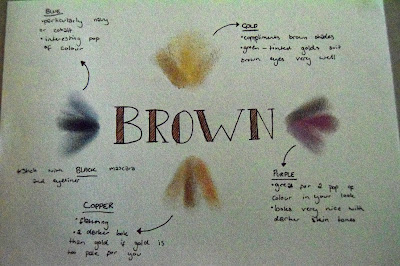 BLUE
• particularly navy
or cobalt
• interesting pop
of colour
GOLD
• compliments brown shades
• green-tinted golds suit
brown eyes very well
BROWN
* Stick with BLACK mascara
and eyeliner
PURPLE
• great for a pop of
colour in your look
• looks very nice with
darker skin tones
COPPER
• Stunning
• a darker look
than gold if gold is
too pale for you